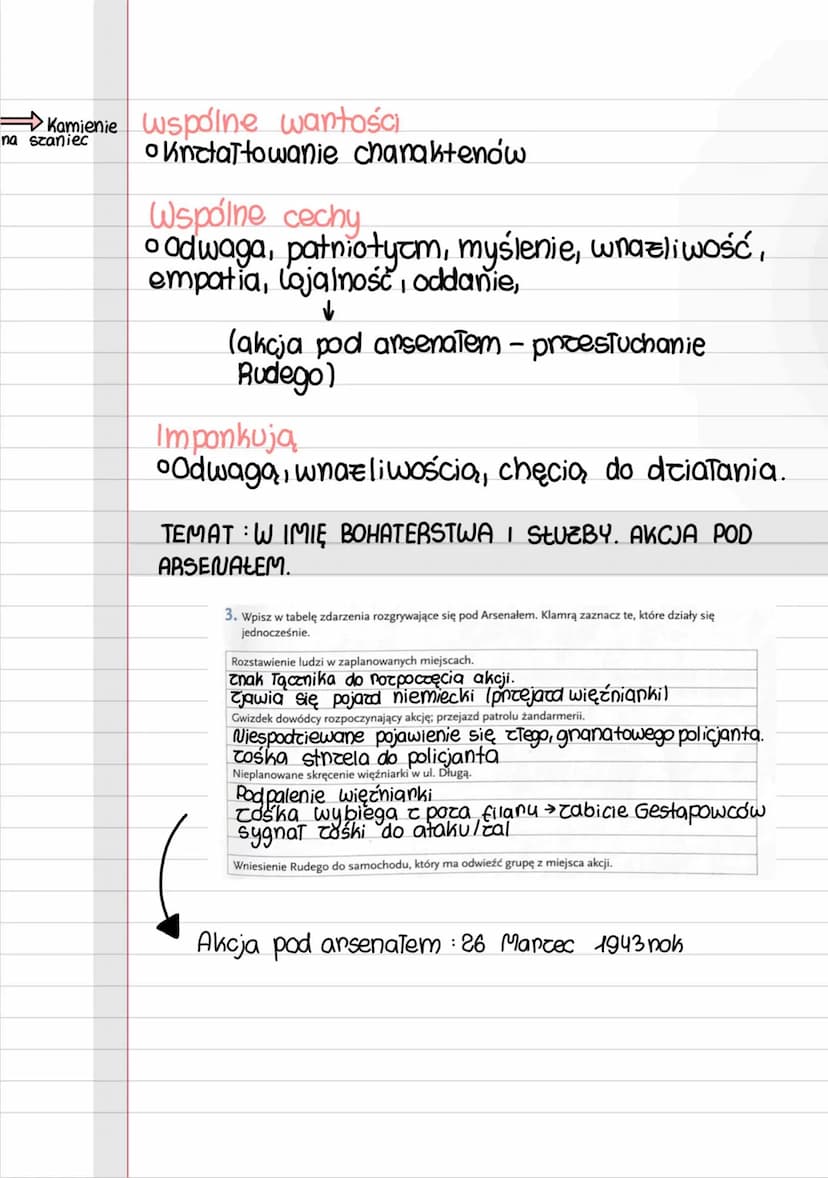 Kamienie
na szaniec
wspólne wartości
Kształtowanie charakterów
Wspólne cechy
odwaga, patriotyzm, myślenie, wrażliwość,
empatia, lojalność, oddanie,
↓
(akcja pod arsenałem - przesłuchanie
Rudego)
Imponkują
Odwagą, wrażliwością, chęcią do działania.
TEMAT : W IMIĘ BOHATERSTWA I SŁUŻBY. AKCJA POD
ARSENAŁEM.
3. Wpisz w tabelę zdarzenia rozgrywające się pod Arsenałem. Klamrą zaznacz te, które działy się
jednocześnie.
Rozstawienie ludzi w zaplanowanych miejscach.
znak łącznika do rozpoczęcia akcji.
Zjawia się pojazd niemiecki (przejazd więźniarki)
Gwizdek dowódcy rozpoczynający akcję; przejazd patrolu żandarmerii.
Niespodziewane pojawienie się złego, granatowego policjanta.
zośka strzela do policjanta
Nieplanowane skręcenie więźniarki w ul. Długą.
Podpalenie więźniarki
zośka wybiega z poza filaru → zabicie Gestapowców
sygnał zośki do ataku/zal
Wniesienie Rudego do samochodu, który ma odwieźć grupę z miejsca akcji.
Akcja pod arsenałem : 26 Marzec 1943 rok